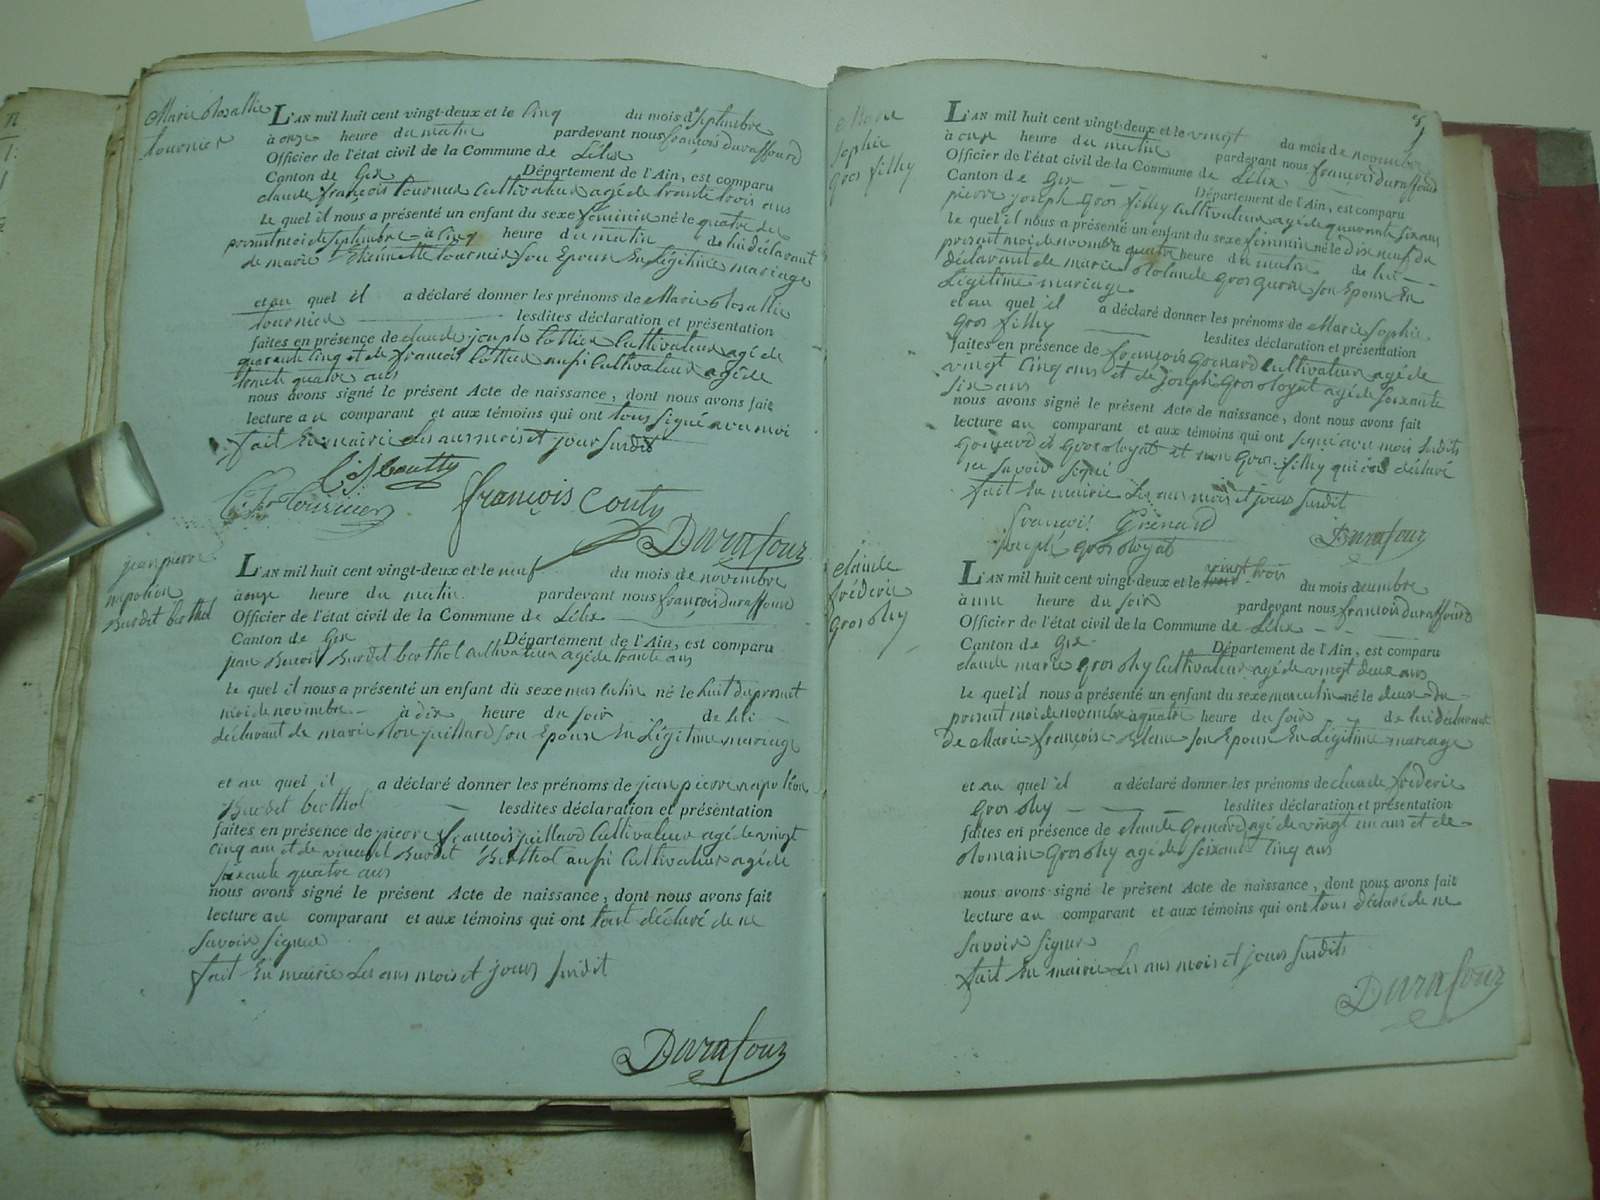 Marie Rosallie
tournier
L'AN mil huit cent vingt-deux et le cinq du mois de Septembre
à onze heure du matin pardevant nous françois duraffourd
Officier de l'état civil de la Commune de Lélex
Canton de Gex Département de l'Ain, est comparu
claude françois tournier Cultivateur agé de trante trois ans
Le quel il nous a présenté un enfant du sexe féminin né le quatre du
présent moi de Septembre à cinq heure du matin de lui déclarant
de marie Etiennette tournier Son Epouse En Légitime mariage
et au quel il a déclaré donner les prénoms de Marie Rosallie
tournier lesdites déclaration et présentation
faites en présence de claude joseph Cultivateur agé de
quarante cinq et de françois aussi Cultivateur agé de
trente quatre ans
nous avons signé le présent Acte de naissance, dont nous avons fait
lecture au comparant et aux témoins qui ont tous Signé avec moi
fait En mairie Les ans mois et jour Susdit
françois Couty
Durafour
jean pierre
napoléon
Burdet berthol
L'AN mil huit cent vingt-deux et le neuf du mois de novembre
à onze heure du matin pardevant nous françois duraffourd
Officier de l'état civil de la Commune de Lélex
Canton de Gex Département de l'Ain, est comparu
jean Benoit Burdet berthol cultivateur agé de trante ans
Le quel il nous a présenté un enfant du sexe masculin né le huit du présent
moi de novembre à dix heure du soir de lui
déclarant de marie juillard Son Epouse En Légitime mariage
et au quel il a déclaré donner les prénoms de jean pierre napoléon
Burdet berthol lesdites déclaration et présentation
faites en présence de pierre françois juillard Cultivateur agé de vingt
cinq ans et de vincent Burdet Berthol aussi Cultivateur agé de
soixante quatre ans
nous avons signé le présent Acte de naissance, dont nous avons fait
lecture au comparant et aux témoins qui ont tout déclaré de ne
Savoir Signer
fait En mairie Les ans mois et jours Susdit
Durafour
Marie
Sophie
Gros filhy
L'AN mil huit cent vingt-deux et le vingt du mois de novembre
à onze heure du matin pardevant nous françois duraffourd
Officier de l'état civil de la Commune de Lélex
Canton de Gex Département de l'Ain, est comparu
pierre joseph Gros filhy Cultivateur agé de quarante six ans
Le quel il nous a présenté un enfant du sexe féminin né le dix neuf du
présent moi de novembre à quatre heure du matin de lui
déclarant de marie Rolande Gros Son Epouse En
Légitime mariage
et au quel il a déclaré donner les prénoms de Marie Sophie
Gros filhy lesdites déclaration et présentation
faites en présence de françois Grenard Cultivateur agé de
vingt cinq ans et de joseph Gros agé de soixante
six ans
nous avons signé le présent Acte de naissance, dont nous avons fait
lecture au comparant et aux témoins qui ont signé avec mois Susdits
Grenard et Gros et non Gros filhy qui a déclaré
ne Savoir Signé
fait En mairie Les ans mois et jours Susdit
françois Grenard
joseph gros
Durafour
claude
fréderic
Gros
L'AN mil huit cent vingt-deux et le vingt trois du mois décembre
à une heure du soir pardevant nous françois duraffourd
Officier de l'état civil de la Commune de Lélex
Canton de Gex Département de l'Ain, est comparu
claude marie Gros Cultivateur agé de vingt deux ans
Le quel il nous a présenté un enfant du sexe masculin né le deux du
présent moi de novembre à quatre heure du soir de lui déclarant
De Marie françoise Son Epouse En Légitime mariage
et au quel il a déclaré donner les prénoms de claude fréderic
Gros lesdites déclaration et présentation
faites en présence de claude Grenard agé de vingt un ans et de
Romain Gros agé de soixante cinq ans
nous avons signé le présent Acte de naissance, dont nous avons fait
lecture au comparant et aux témoins qui ont tous déclaré de ne
Savoir Signer
fait En mairie Les ans mois et jours Susdits
Durafour